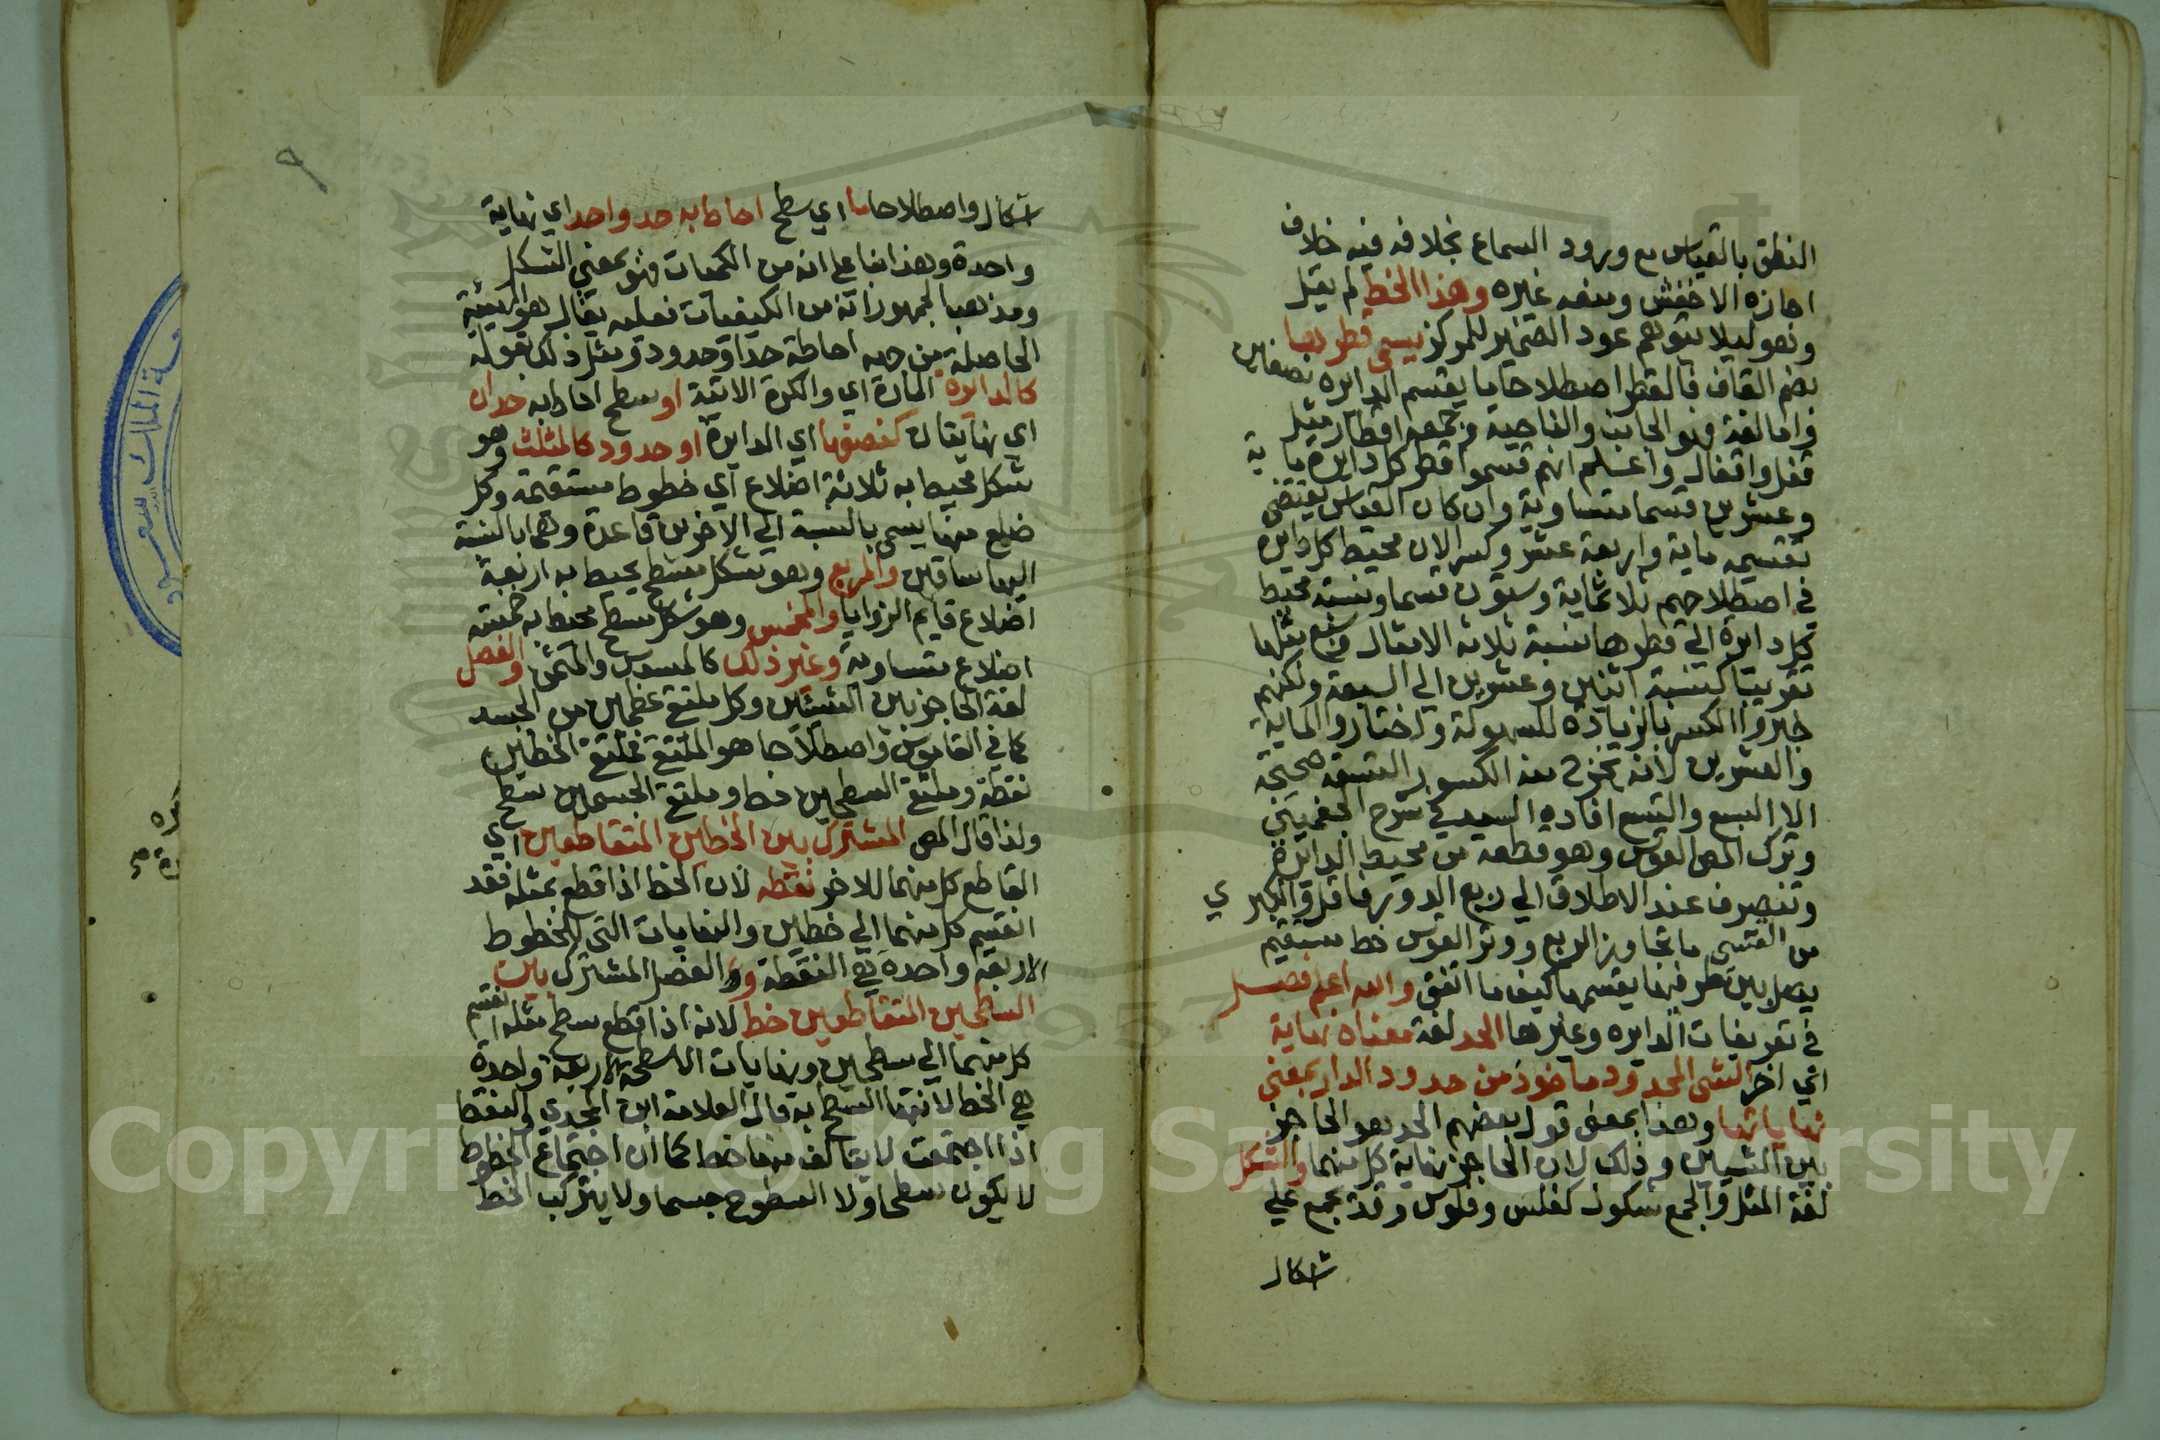 النطق بالقياس مع ورود السماع بخلافه فيه خلاف
اجازه الاخفش ومنعه غيره وهذا الخط لم يقل
وهو ليلا يتوهم عود الضمير للمركز يسمى قطرها
بضم القاف فالقطر اصطلاحا ما يقسم الدايرة نصفين
واما لغة فهو الجانب والناحية وجمعه اقطار مثل
قفل واقفال واعلم انهم قسموا قطر كل دايرة ماية
وعشرين قسما متساوية وان كان القياس يقتضى
تقسيمه ماية واربعة عشر وكسر لان محيط كل دايرة
في اصطلاحهم ثلاثماية وستون قسما ونسبة محيط
كل دايرة الي قطرها نسبة ثلاثة الامثال وسبع مثلها
تقريبا كنسبة اثنين وعشرين الي السبعة ولكنهم
جبروا الكسر بالزيادة للسهولة واختاروا الماية
والعشرين لانه يخرج منه الكسور التسعة صحيحة
الا السبع والتسع افاده السيد في شرح الجغميني
وترك المص القوس وهو قطعة من محيط الدايرة
وتنصرف عند الاطلاق الي ربع الدور فاقل والكبري
من القسي ما تجاوز الربع ووتر القوس خط مستقيم
يصل بين طرفيها يقسمها كيف ما اتفق والله اعلم فصل
في تعريفات الدايره وغيرها الحد لغة معناه نهاية
اي اخر الشى المحدود ماخوذ من حدود الدار بمعني
نهاياتها وهذا بمعنى قول بعضهم الحد هو الحاجز
بين الشيين وذلك لان الحاجز نهاية كل منهما والشكل
لغة المثل والجمع شكول كفلس وفلوس وقد يجمع على
اشكال
اشكال واصطلاحا ما اي سطح احاط به حد واحد اي نهاية
واحدة وهذا بنا على انه من الكميات فهو بمعني الشكل
ومذهب الجمهور انه من الكيفيات فعليه يقال هو الهيئة
الحاصلة من جهه احاطة حد او حدود ومثل ذلك بقوله
كالدايرة المارة اي والكرة الاتية او سطح احاط به حدان
اي نهايتان كنصفها اي الدايرة او حدود كالمثلث وهو
شكل محيط به ثلاثة اضلاع اي خطوط مستقيمة وكل
ضلع منها يسمى بالنسبة الي الاخرين قاعدة وهما بالنسبة
اليها ساقين والمربع وهو شكل مسطح يحيط به اربعة
اضلاع قايم الزوايا والمخمس وهو شكل مسطح محيط به خمسة
اضلاع متساوية وغير ذلك كالمسدس والمثمن والفصل
لغة الحاجز بين الشيئين وكل ملتقى عظمين من الجسد
كما في القاموس واصطلاحا هو الملتقى فملتقى الخطين
نقطة وملتقى السطحين خط وملتقى الجسمين سطح
ولذا قال المص المشترك بين الخطين المتقاطعين اي
القاطع كل منهما للاخر نقطه لان الخط اذا قطع بمثله فقد
انقسم كل منهما الي خطين والنهايات التي للخطوط
الاربعة واحدة هي النقطة و والفصل المشترك بين
السطحين المتقاطعين خط لانه اذا قطع سطح مثله انقسم
كل منهما الي سطحين ونهايات الاسطحة الاربعة واحدة
هي الخط لانتها السطح به قال العلامة ابن المجدي والنقط
اذا اجتمعت لا يتالف منها خط كما ان اجتماع الخطوط
لا يكون سطحا ولا السطوح جسما ولا يتركب الخط
Copyright © King Saud University
1957